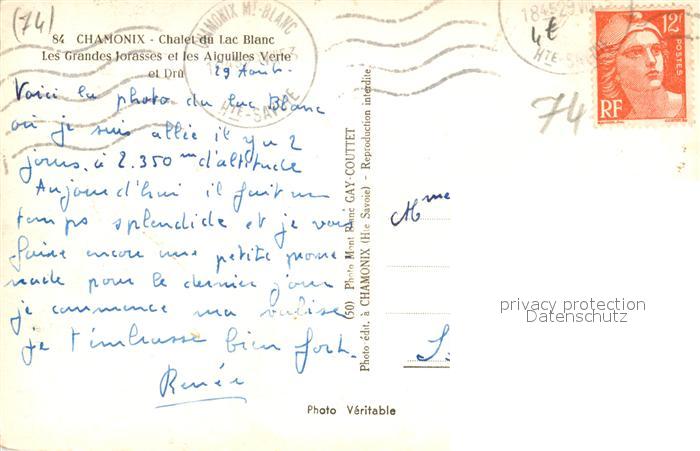 (74)
84 CHAMONIX - Chalet du Lac Blanc
Les Grandes Jorasses et les Aiguilles Verte
et Dru
CHAMONIX MT-BLANC
HTE-SAVOIE
1845 29
HTE-SAVOIE
4€
12F
POSTES
RF
74
29 Août.
Voici la photo du lac Blanc
où je suis allée il y a 2
jours, à 2.350m d'altitude
Aujourd'hui il fait un
temps splendide et je vais
faire encore une petite prome
nade pour le dernier jour
je commence ma valise
je t'embrasse bien fort.
Renée
(50) Photo Mont Blanc GAY-COUTTET
Photo édit. à CHAMONIX (Hte Savoie) - Reproduction interdite.
Mme
privacy protection
Datenschutz
Photo Véritable